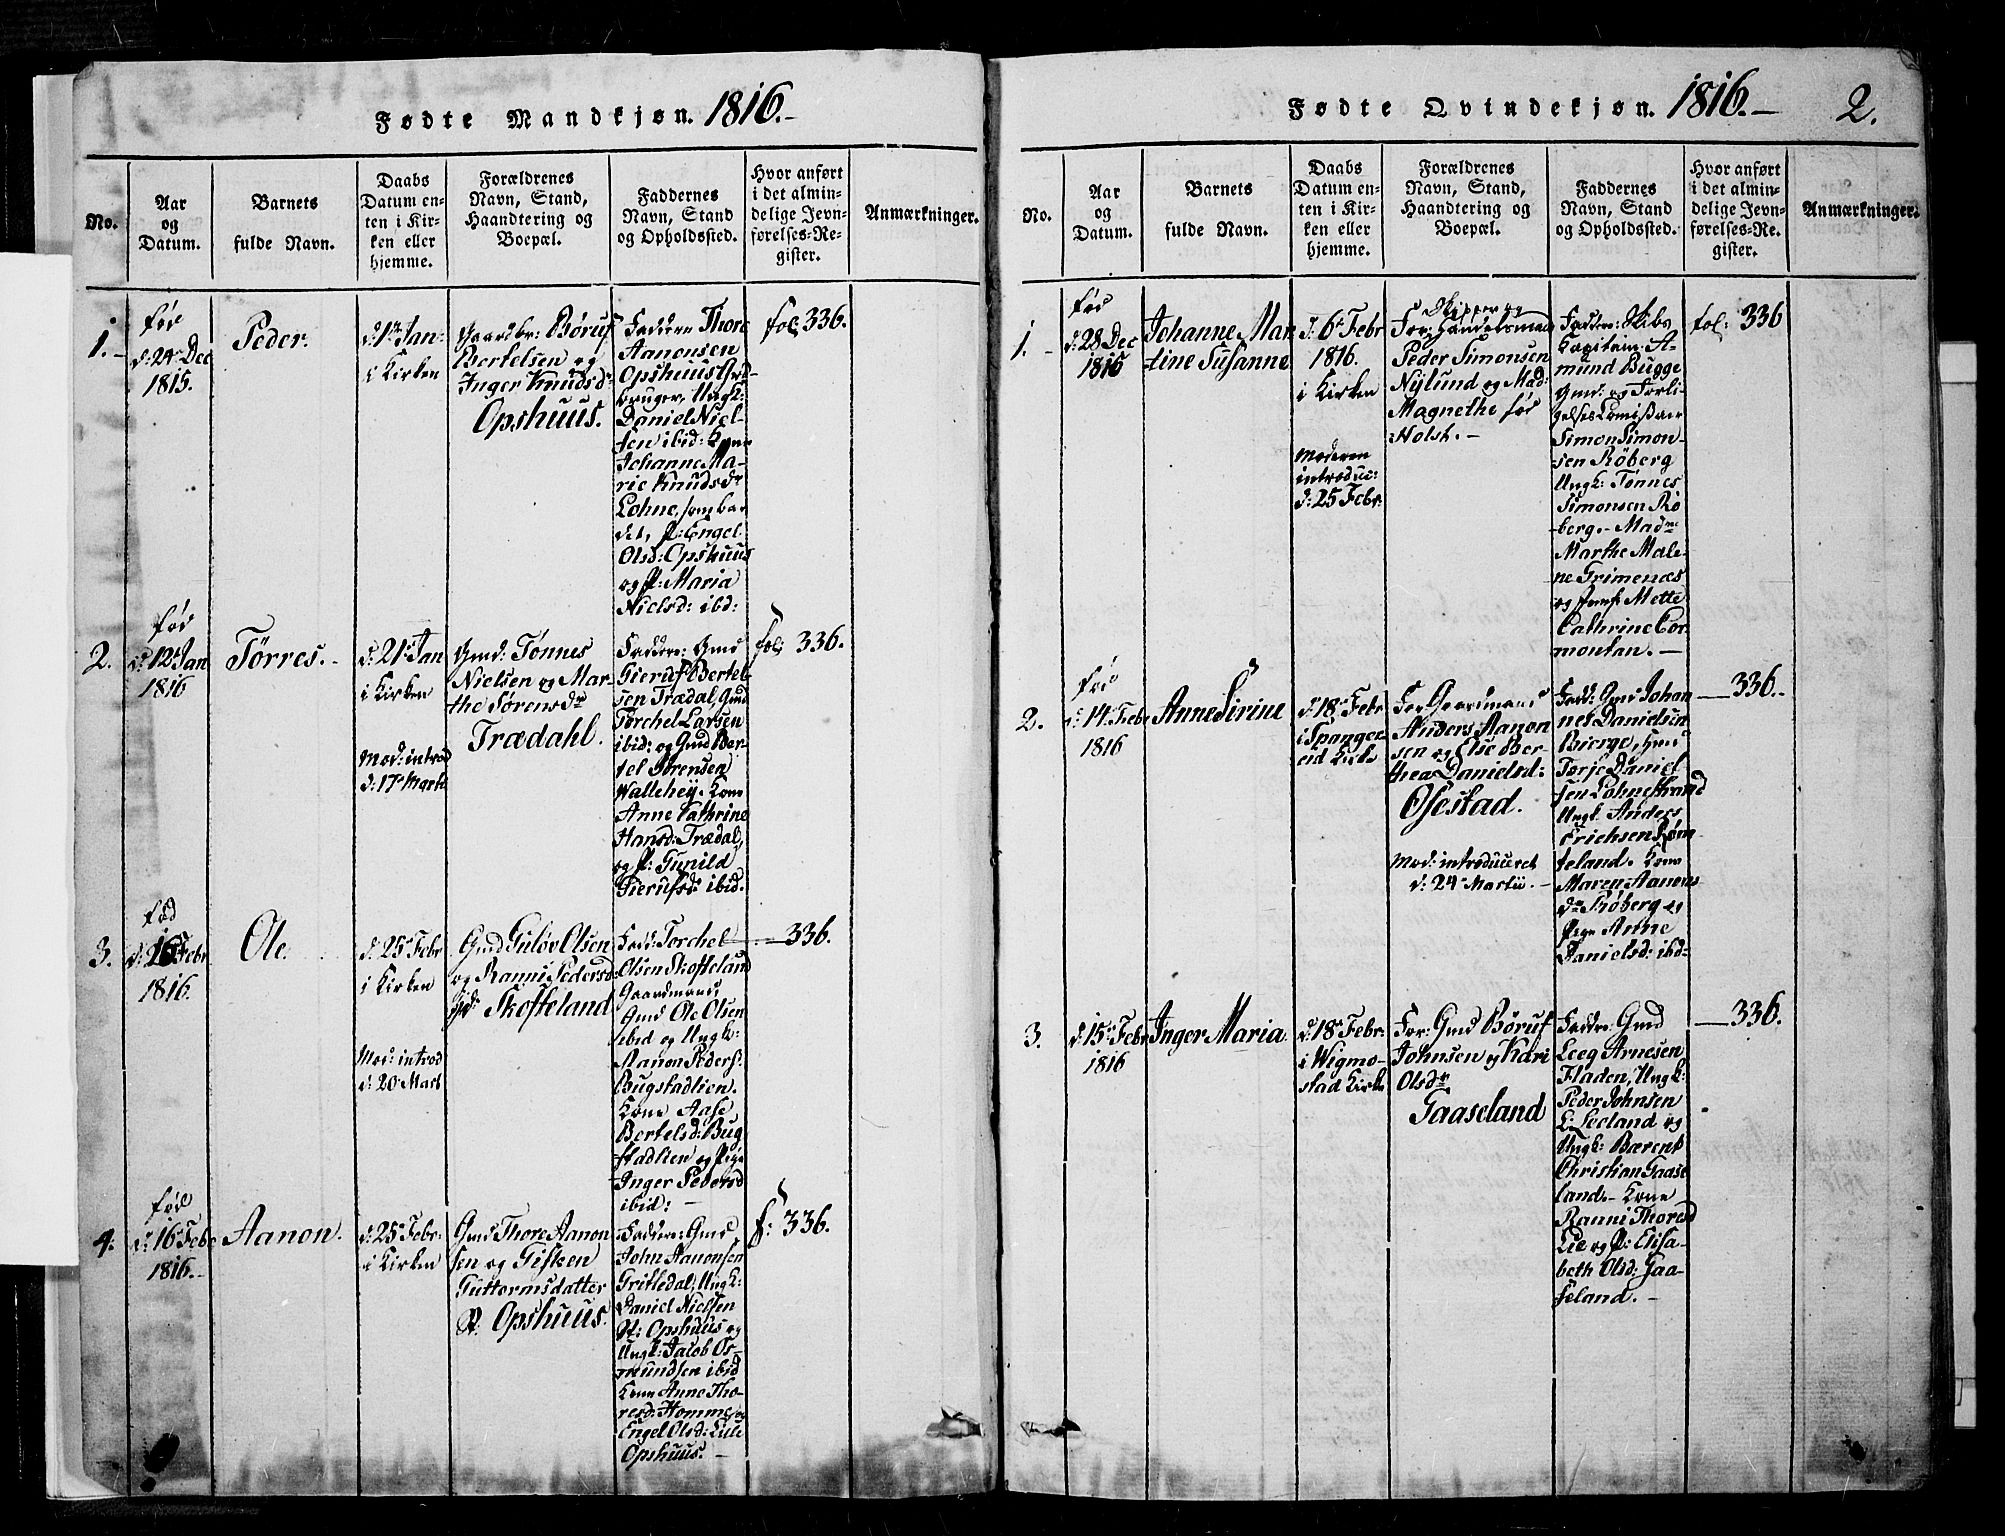 Fødte Mandkjøn. 1816.-
No.
Aar
og
Datum.
Barnets
fulde Navn.
Daabs
Datum en-
ten i Kir-
ken eller
hjemme.
Forældrenes
Navn, Stand,
Haandtering og
Boepæl.
Faddernes
Navn, Stand
og Opholdssted.
Hvor anført
i det almin-
delige Jevn-
førelses-Re-
gister.
Anmærkninger.
1.-
fød
d: 24 Dec
1815.
Peder.
d 1 Jan
i Kirken
Gaardbr: Børuf
Bertelsen og
Inger Knudsdr
Opshuus.
Faddere Thore
Aanonsen
Opshuus
bruger, Ungk:
Daniel Niel-
sen ibid: Kone
Johanne Ma-
rie Knudsdr
Lohne, som bar
det, P: Engel
Olsd: Opshuus
og P: Maria
Nielsd: ibd:
fol: 336.
2.
fød
d: 12 Jan
1816
Tørres.-
d: 21 Jan
i Kirken
Mod: introd
d: 17 Marts
Gmd: Tønnes
Nielsen og Mar-
the Sørensdr
Trædahl.
Faddere: Gmd
Gieruf Bertel-
sen Trædal, Gmd
Torchel Larsen
ibid: og Gmd Ber-
tel Sørensen
Wallehey. Kone
Anne Cathrine
Hansd: Trædal,
og P: Gunild
Gierufsd: ibid.
fol: 336.
3.
fød
d: 16 Febr
1816.
Ole.
d: 25 Febr
i Kirken
Mod: introd
d: 20 Mart
Gmd Guløv Olsen
og Ranni Pedersd:
Skofteland
Fadd: Torchel
Olsen Skofteland
Gaardmand,
Gmd Ole Olsen
ibid og Ungk:
Aanon Peders:
Bugstadlien.
Kone Aase
Bertelsd: Bug
stadlien og Pige
Inger Pedersd
ibid: -
336.
4.
fød
d: 16 Febr
1816.-
Aanon.
d: 25 Febr
i Kirken
Gmd Thore Aanon
sen og Gisken
Guttormsdatter
St. Opshuus.
Faddere: Gmd
John Aanonsen
Gritledal, Ungk:
Daniel Nielsen
St: Opshuus og
Ungk: Jacob Os-
mundsen ibid
Kone Anne Tho-
resd: Homme, og
Engel Olsd: Lille
Opshuus. -
f: 336.
Fødte Qvindekjøn. 1816.-
2.
No.
Aar
og
Datum.
Barnets
fulde Navn.
Daabs
Datum en-
ten i Kir-
ken eller
hjemme.
Forældrenes
Navn, Stand,
Haandtering og
Boepæl.
Faddernes
Navn, Stand
og Opholdssted.
Hvor anført
i det almin-
delige Jevn-
førelses-Re-
gister.
Anmærkninger.
1.-
fød
d: 28 Dec
1815
Johanne Mar
tine Susanne
d: 6 Febr
1816.
i Kirken
Moderen
introduc:
d: 25 Febr:
Skipper og
For: Handelsmand
Peder Simonsen
Nylund og Mad:
Magnethe fød
Holst.-
Faddere: Skibs
Kapitain A-
mund Bugge
Gmd: og Forli-
gelses Comissair
Simon Simon-
sen Røberg
Ungk: Tønnes
Simonsen Rø
berg.- Madme
Marthe Male-
ne Grimenæs
og Jomfr Mette
Cathrine Cor-
montan.-
fol: 336
2.
fød
d: 14 Febr
1816
Anne Sirine
d: 18 Febr
i Spange-
reid Kirke
For Gaardmand
Anders Aanon
sen og Else Ber-
thea Danielsd:
Osestad.
Mod: introduceret
d: 24 Martii.-
Fadd: Gmd Johan
nes Danielsen
Bierge, Gmd
Torje Daniel
sen Lohnestrand
Ungk. Anders
Erichsen Røm
teland. Kone
Maren Aanons
dr Røberg og
Pige Anne
Danielsd: ibd-
336.
3.
d: 15 Febr
1816
Inger Maria.
d: 18 Febr.
i Wigmo-
stad Kirke
For: Gmd Børuf
Johnsen og Kari
Olsdr
Gaaseland
Faddre: Gmd
Leeg Arnesen
Fladen, Ungk:
Peder Johnsen
L: Seeland og
Ungk: Bærent
Christian Gaase
land.- Kone
Ranni Thoresd
Lie og P: Elisa-
beth Olsd: Gaa-
seland.-
336.